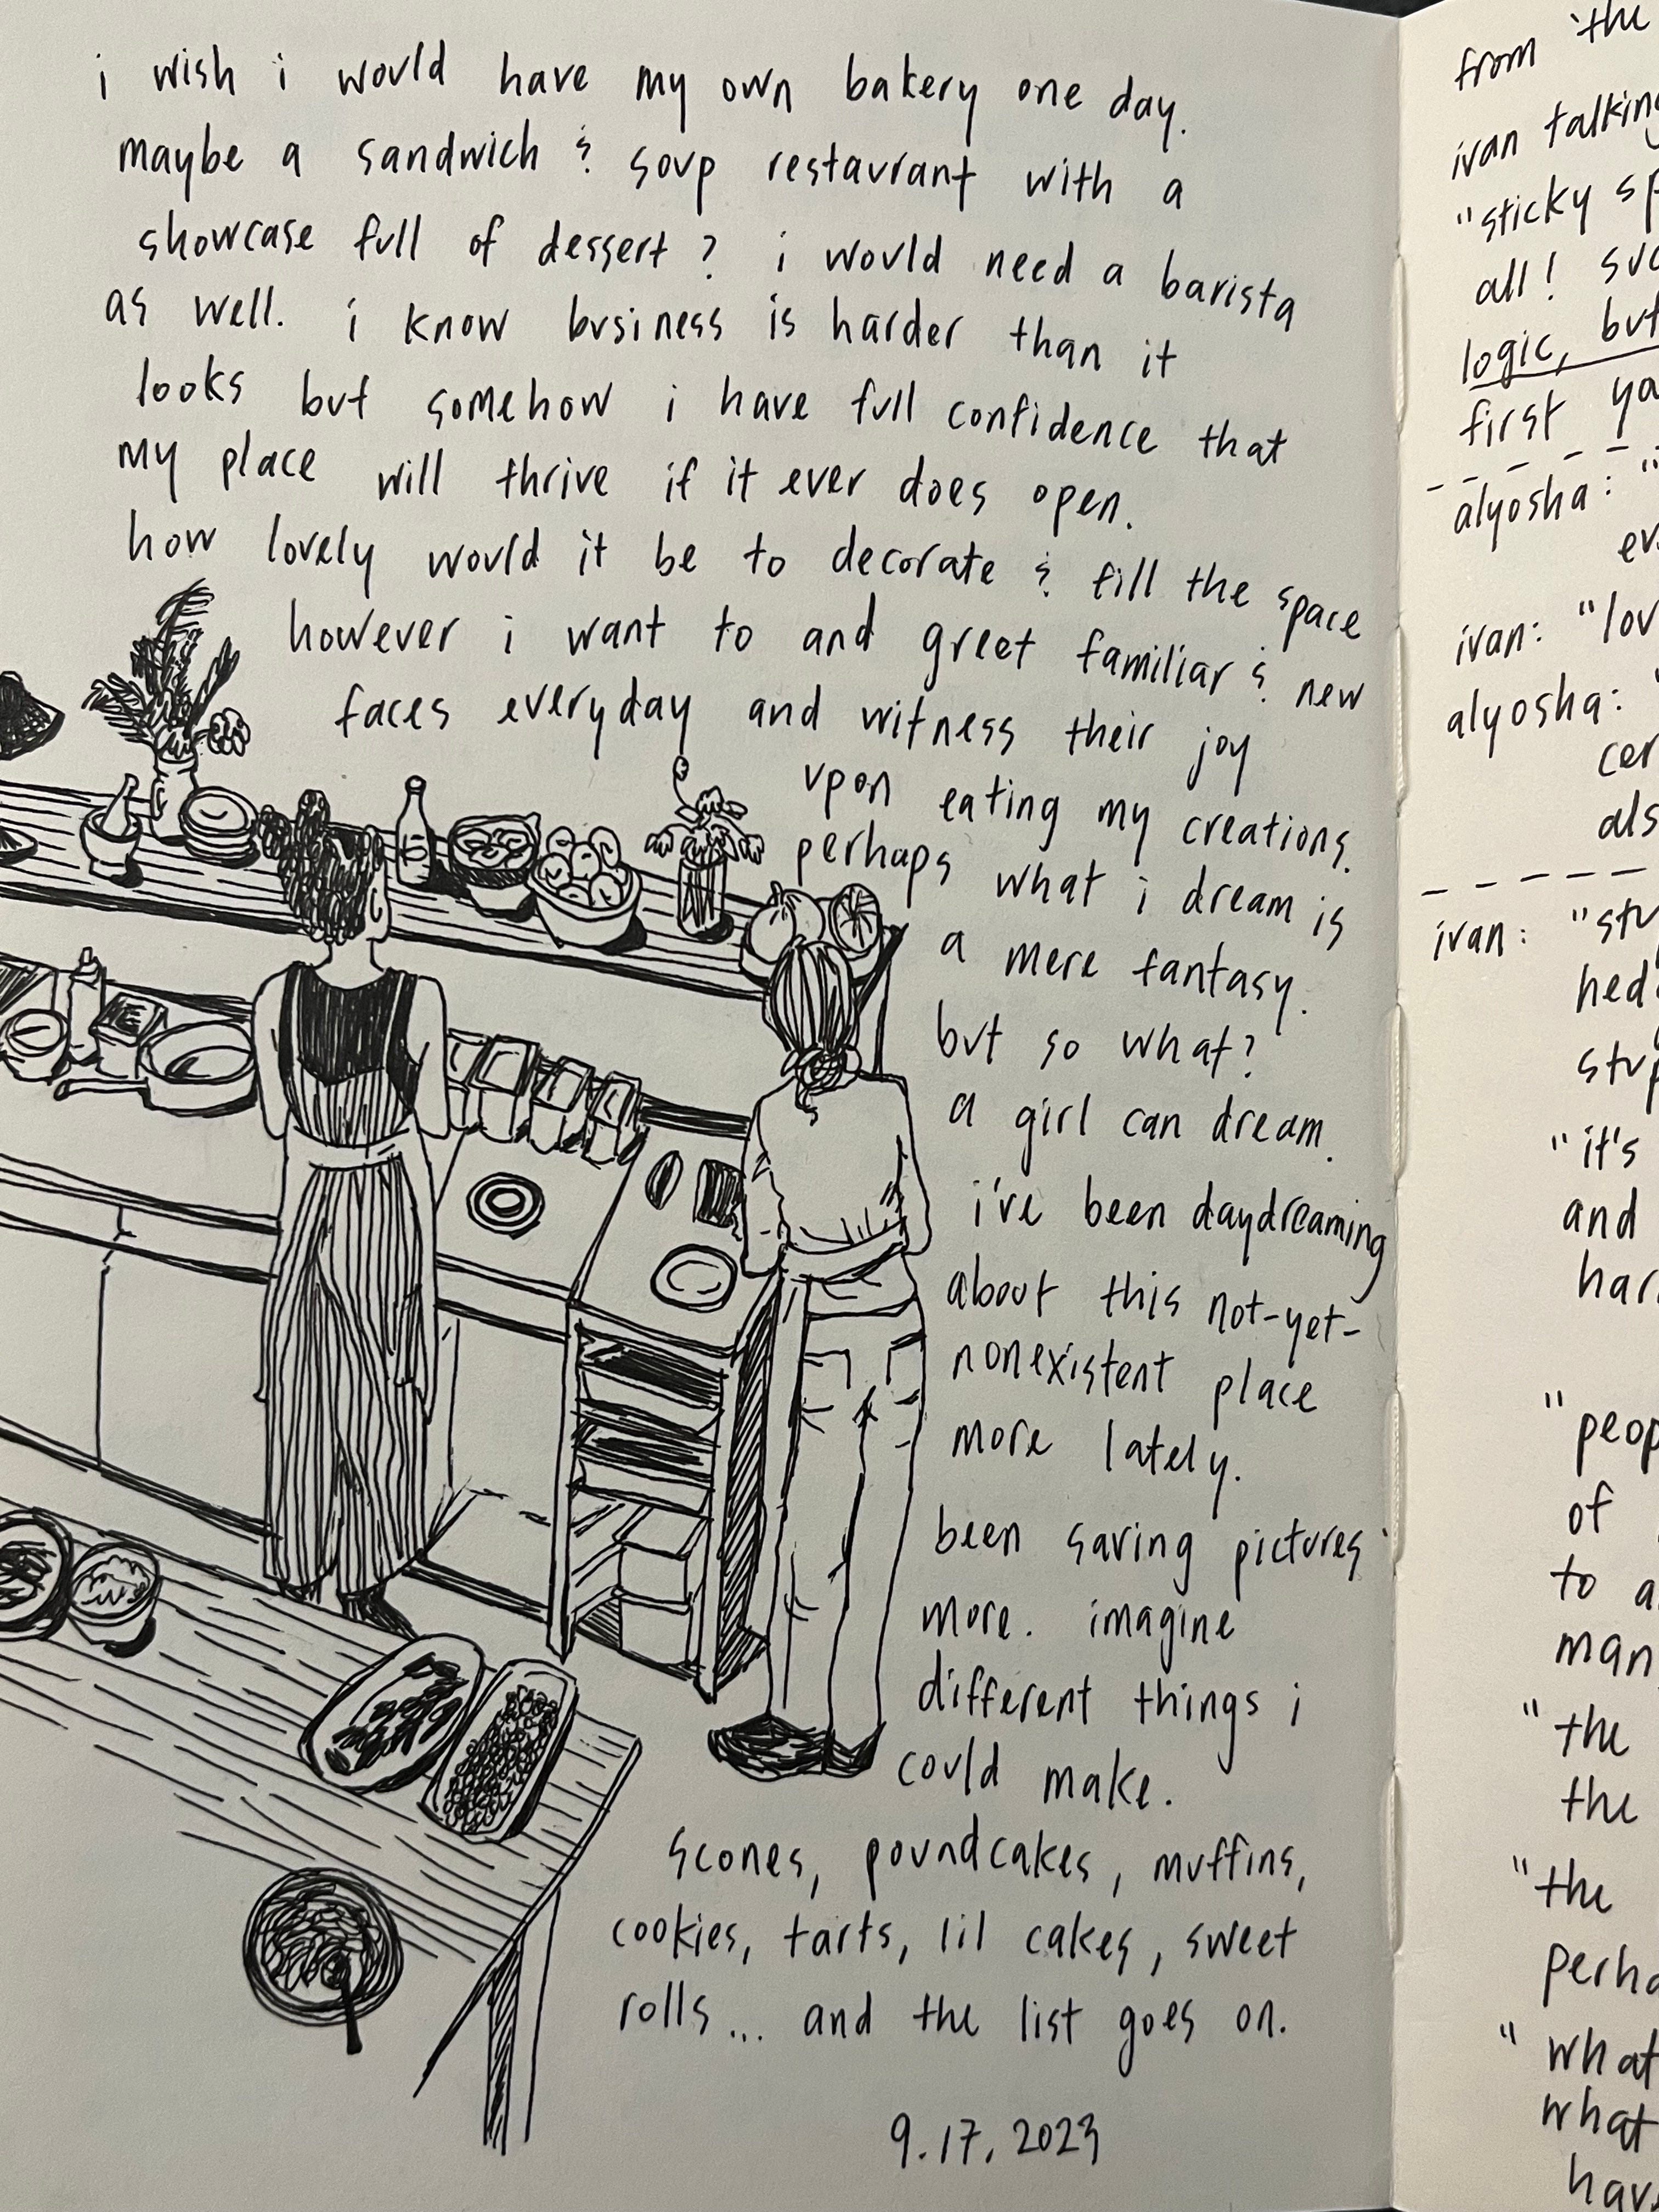 i wish i would have my own bakery one day.
maybe a sandwich & soup restaurant with a
showcase full of dessert? i would need a barista
as well. i know business is harder than it
looks but somehow i have full confidence that
my place will thrive if it ever does open.
how lovely would it be to decorate & fill the space
however i want to and greet familiar & new
faces everyday and witness their joy
upon eating my creations.
perhaps what i dream is
a mere fantasy.
but so what?
a girl can dream.
i've been daydreaming
about this not-yet-
nonexistent place
more lately.
been saving pictures
more. imagine
different things i
could make.
scones, poundcakes, muffins,
cookies, tarts, lil cakes, sweet
rolls... and the list goes on.
9.17.2023
from 'the
ivan talking
"sticky
all!
logic, but
first
alyosha: "
ivan: "
alyosha: "
ivan: "
"it's
and
"
of
to
"the
the
"the
"what
what